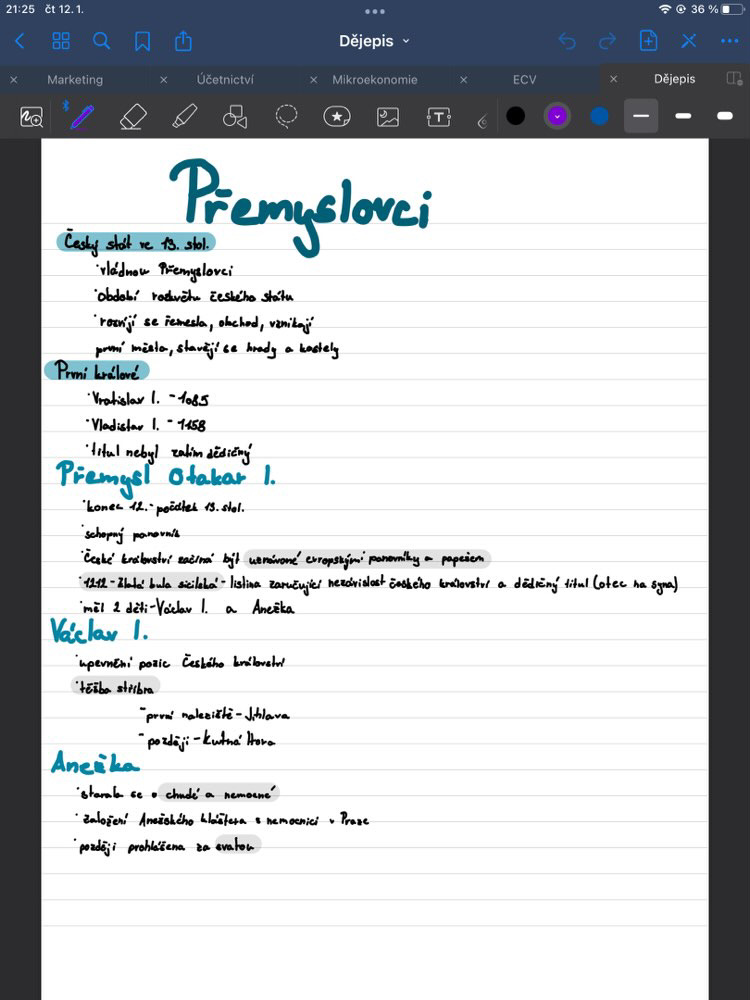 21:25 čt 12. 1.
36 %
Dějepis
Marketing
Účetnictví
Mikroekonomie
ECV
Dějepis
Přemyslovci
Český stát ve 13. stol.
·vládnou Přemyslovci
·období rozkvětu českého státu
·rozvíjí se řemesla, obchod, vznikají
první města, stavějí se hrady a kostely
První králové
·Vratislav I. - 1085
·Vladislav I. - 1158
·titul nebyl zatím dědičný
Přemysl Otakar I.
·konec 12. - počátek 13. stol.
·schopný panovník
·České království začíná být uznávané evropskými panovníky a papežem
·1212 - Zlatá bula sicilská - listina zaručující nezávislost českého království a dědičný titul (otec na syna)
·měl 2 děti - Václav I. a Anežka
Václav I.
·upevnění pozic Českého království
·těžba stříbra
- první naleziště - Jihlava
- později - Kutná Hora
Anežka
·starala se o chudé a nemocné
·založení Anežského kláštera s nemocnicí v Praze
·později prohlášena za svatou